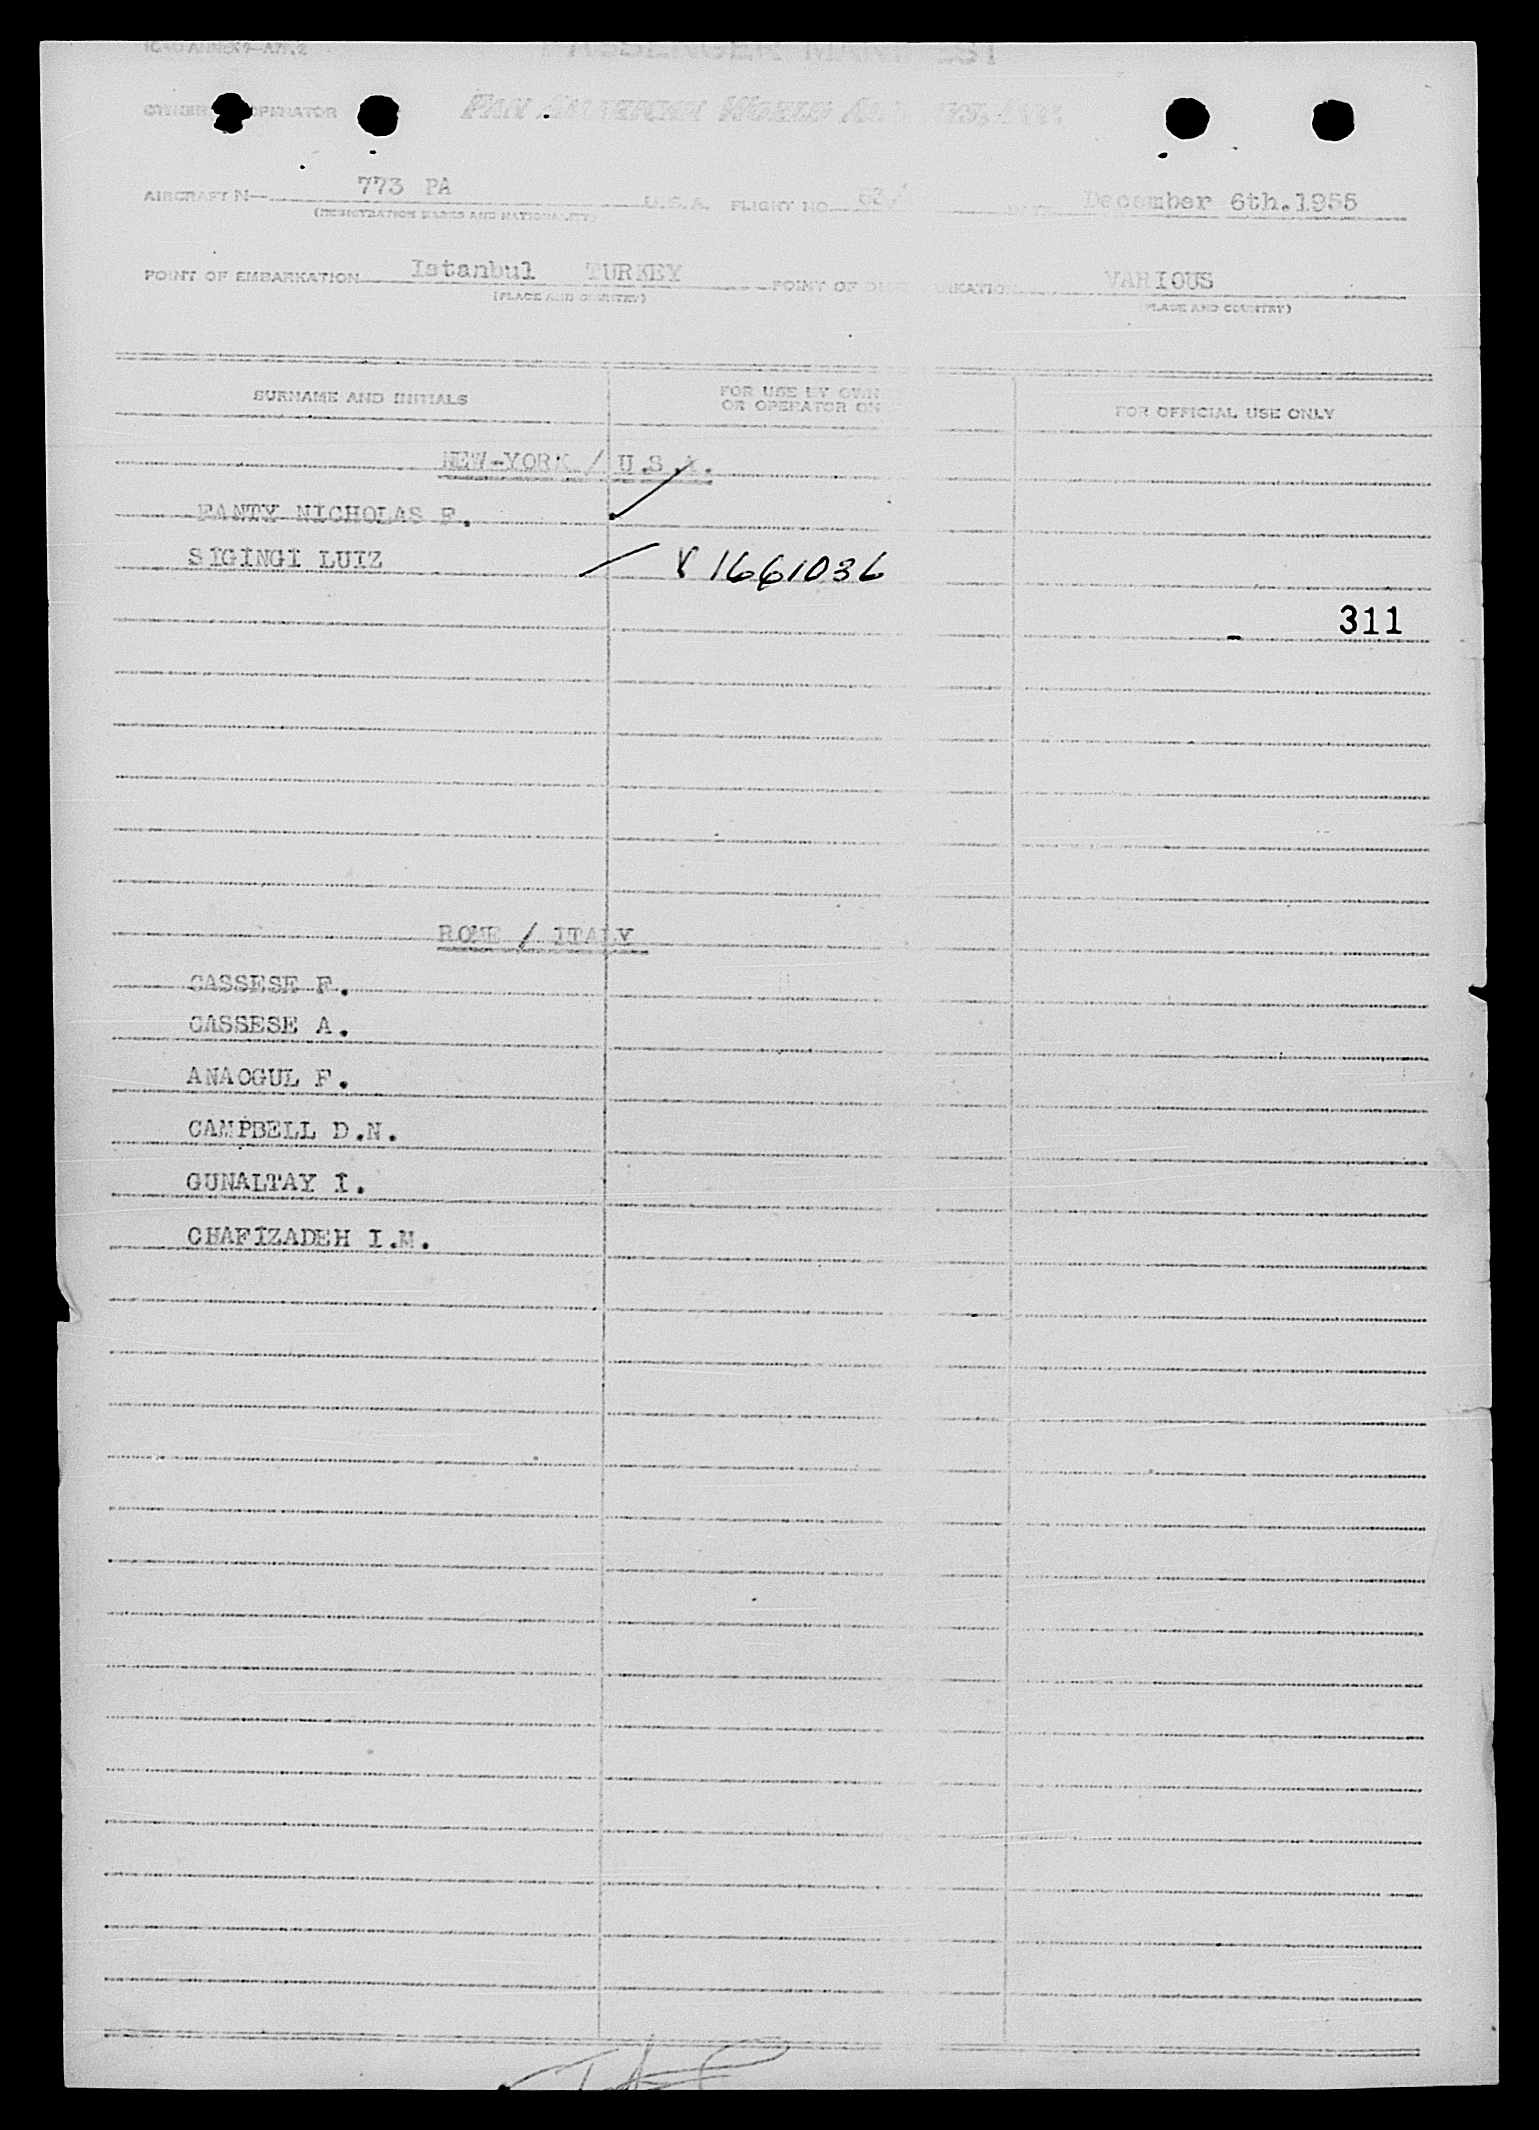 ICAO ANNEX 9—APP. 2
PASSENGER MANIFEST
OWNER OPERATOR PAN AMERICAN WORLD
AIRCRAFT N— 773 PA U.S.A. FLIGHT NO. 63/ December 6th.1955
(REGISTRATION MARKS AND NATIONALITY)
POINT OF EMBARKATION Istanbul TURKEY POINT OF VARIOUS
(PLACE AND COUNTRY) (PLACE AND COUNTRY)
SURNAME AND INITIALS FOR USE BY OWN FOR OFFICIAL USE ONLY
OR OPERATOR ON
NEW-YORK / U.S.A.
FANTY NICHOLAS F.
SİGİNGİ LUIZ V 1661036
311
ROME / ITALY
CASSESE F.
CASSESE A.
ANAOGUL F.
CAMPBELL D.N.
GUNALTAY İ.
CHAFİZADEH I.M.